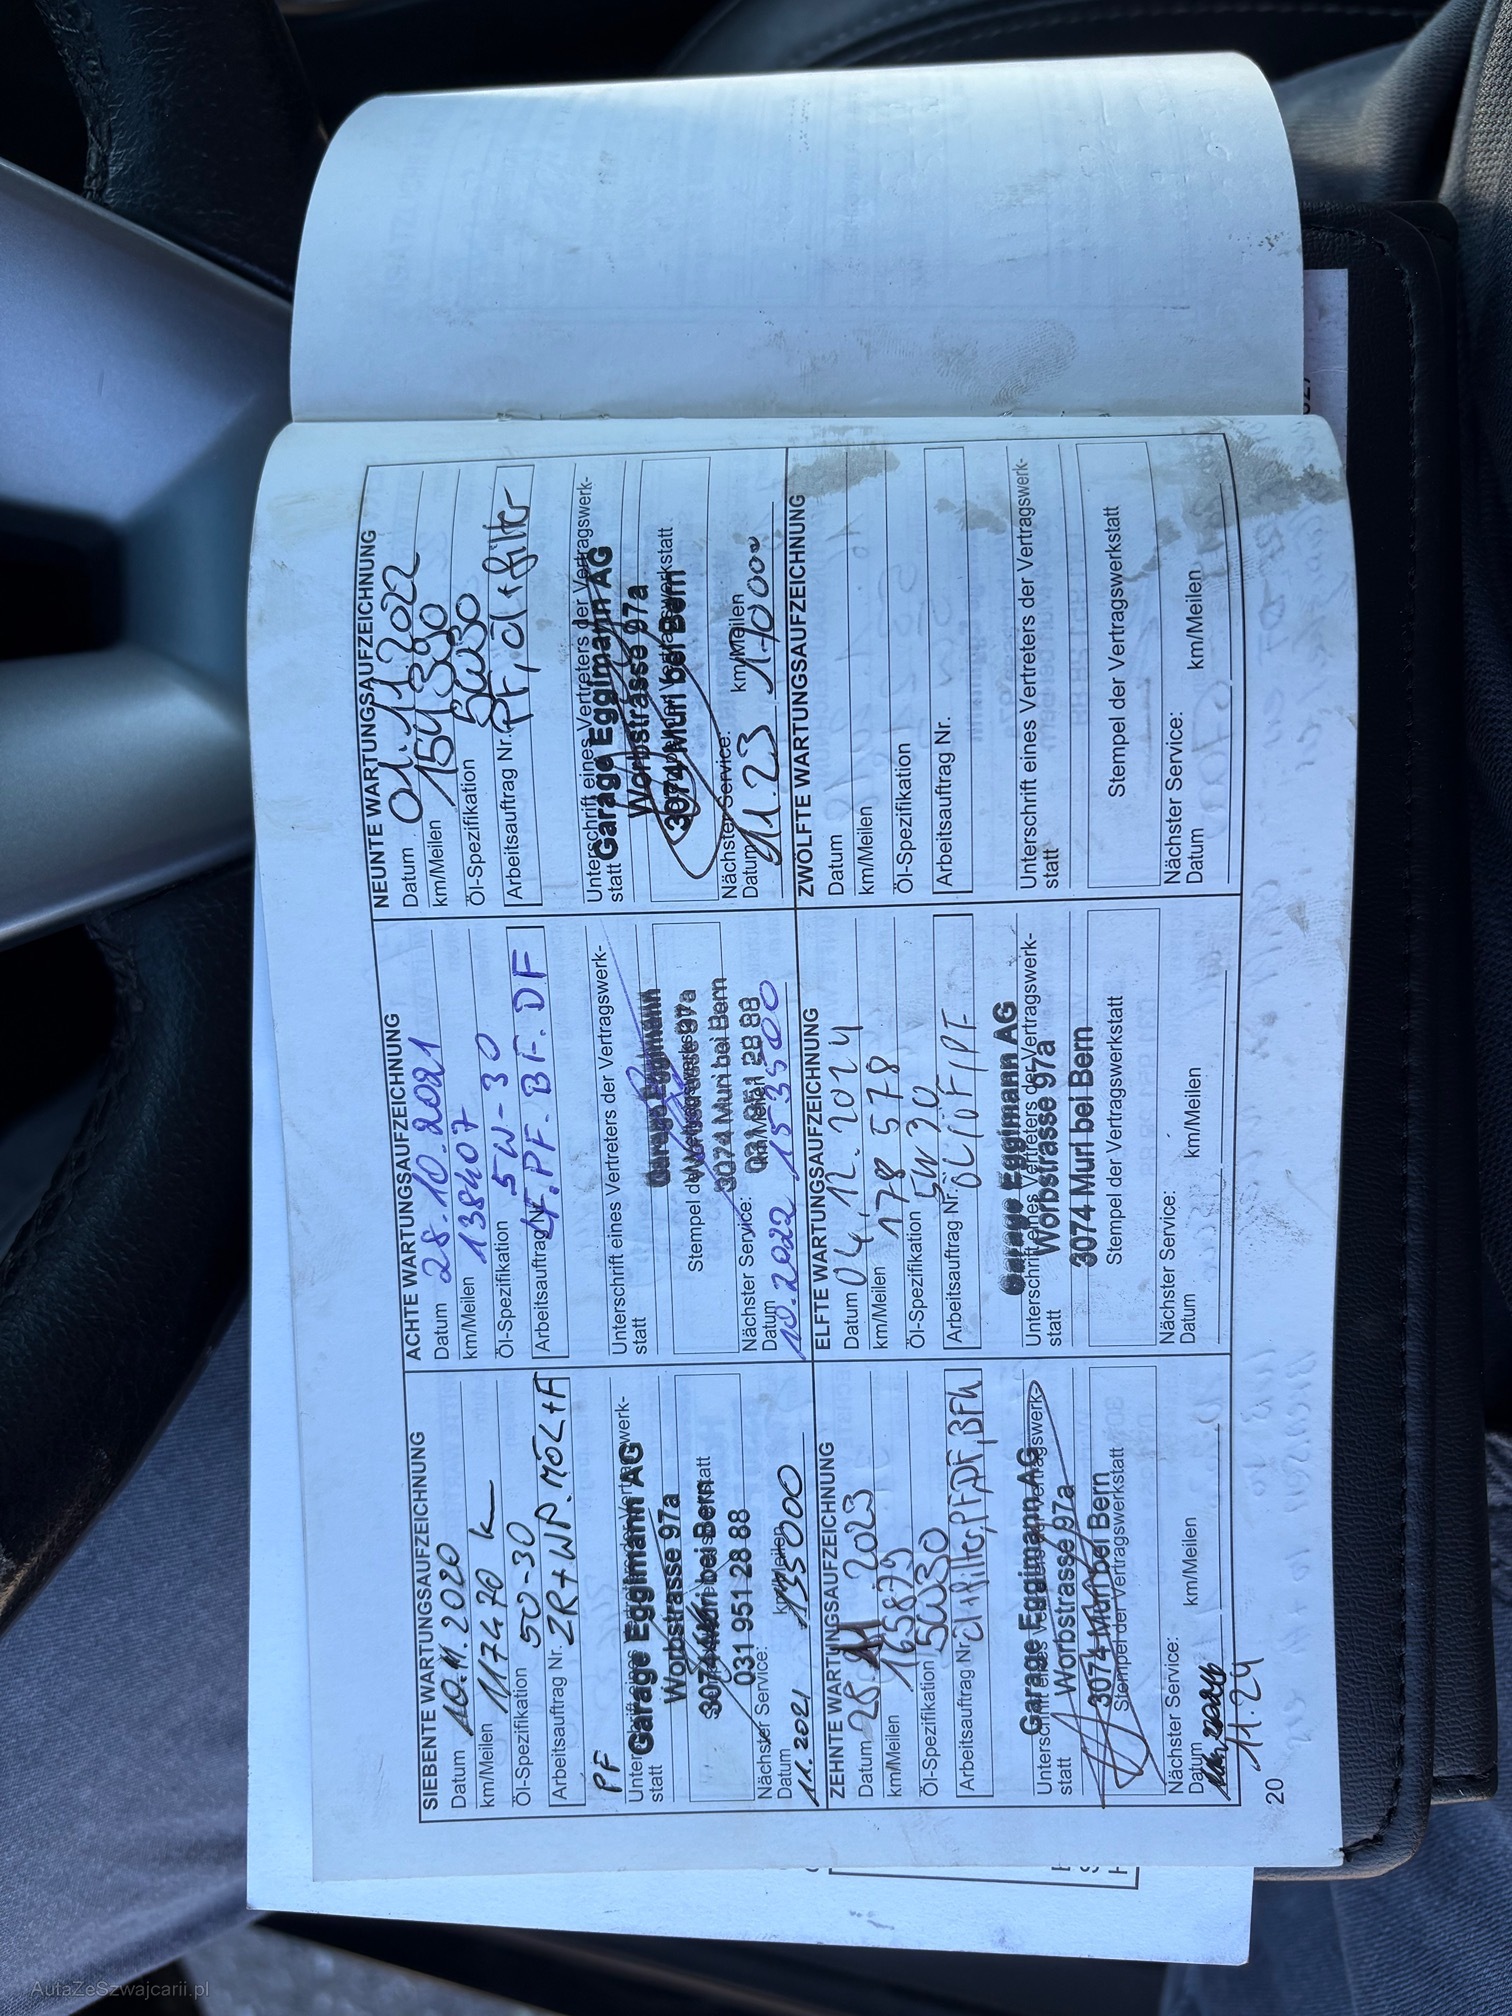 SIEBENTE WARTUNGSAUFZEICHNUNG
Datum 10.11.2020
km/Meilen 117470 k
Öl-Spezifikation 50-30
Arbeitsauftrag Nr. ZR+WP.MÖL+F
PF
Garage Eggimann AG
statt
Worbstrasse 97a
3074 Muri bei Bern
031 951 28 88
Nächster Service:
Datum km/Meilen
11.2021 135000
ACHTE WARTUNGSAUFZEICHNUNG
Datum 28.10.2021
km/Meilen 138407
Öl-Spezifikation 5W-30
Arbeitsauftrag Nr. PF.BF.DF
Unterschrift eines Vertreters der Vertragswerk-
statt
Garage Eggimann
Worbstrasse 97a
Stempel der
3074 Muri bei Bern
031 951 28 88
Nächster Service:
Datum km/Meilen
10.2022 153500
NEUNTE WARTUNGSAUFZEICHNUNG
Datum 01.12022
km/Meilen 154390
Öl-Spezifikation 5W30
Arbeitsauftrag Nr. PF, öl+filter
Unterschrift eines Vertreters der Vertragswerk-
statt Garage Eggimann AG
Worbstrasse 97a
3074 Muri bei Bern
Nächster Service:
Datum km/Meilen
11.23
ZEHNTE WARTUNGSAUFZEICHNUNG
Datum 28.11.2023
km/Meilen 165879
Öl-Spezifikation 5W30
Arbeitsauftrag Nr. öl+filter, PF, DF, BFK
Garage Eggimann AG
Unterschrift eines Vertreters der Vertragswerk-
statt
Worbstrasse 97a
3074 Muri bei Bern
Stempel der Vertragswerkstatt
Nächster Service:
Datum km/Meilen
11.24
ELFTE WARTUNGSAUFZEICHNUNG
Datum 04.12.2024
km/Meilen 178 578
Öl-Spezifikation 5W30
Arbeitsauftrag Nr. ÖL/ÖF/PF
Garage Eggimann AG
Unterschrift eines Vertreters der Vertragswerk-
statt
Worbstrasse 97a
3074 Muri bei Bern
Stempel der Vertragswerkstatt
Nächster Service:
Datum km/Meilen
ZWÖLFTE WARTUNGSAUFZEICHNUNG
Datum
km/Meilen
Öl-Spezifikation
Arbeitsauftrag Nr.
Unterschrift eines Vertreters der Vertragswerk-
statt
Stempel der Vertragswerkstatt
Nächster Service:
Datum km/Meilen
20
AutaZeSzwajcarii.pl